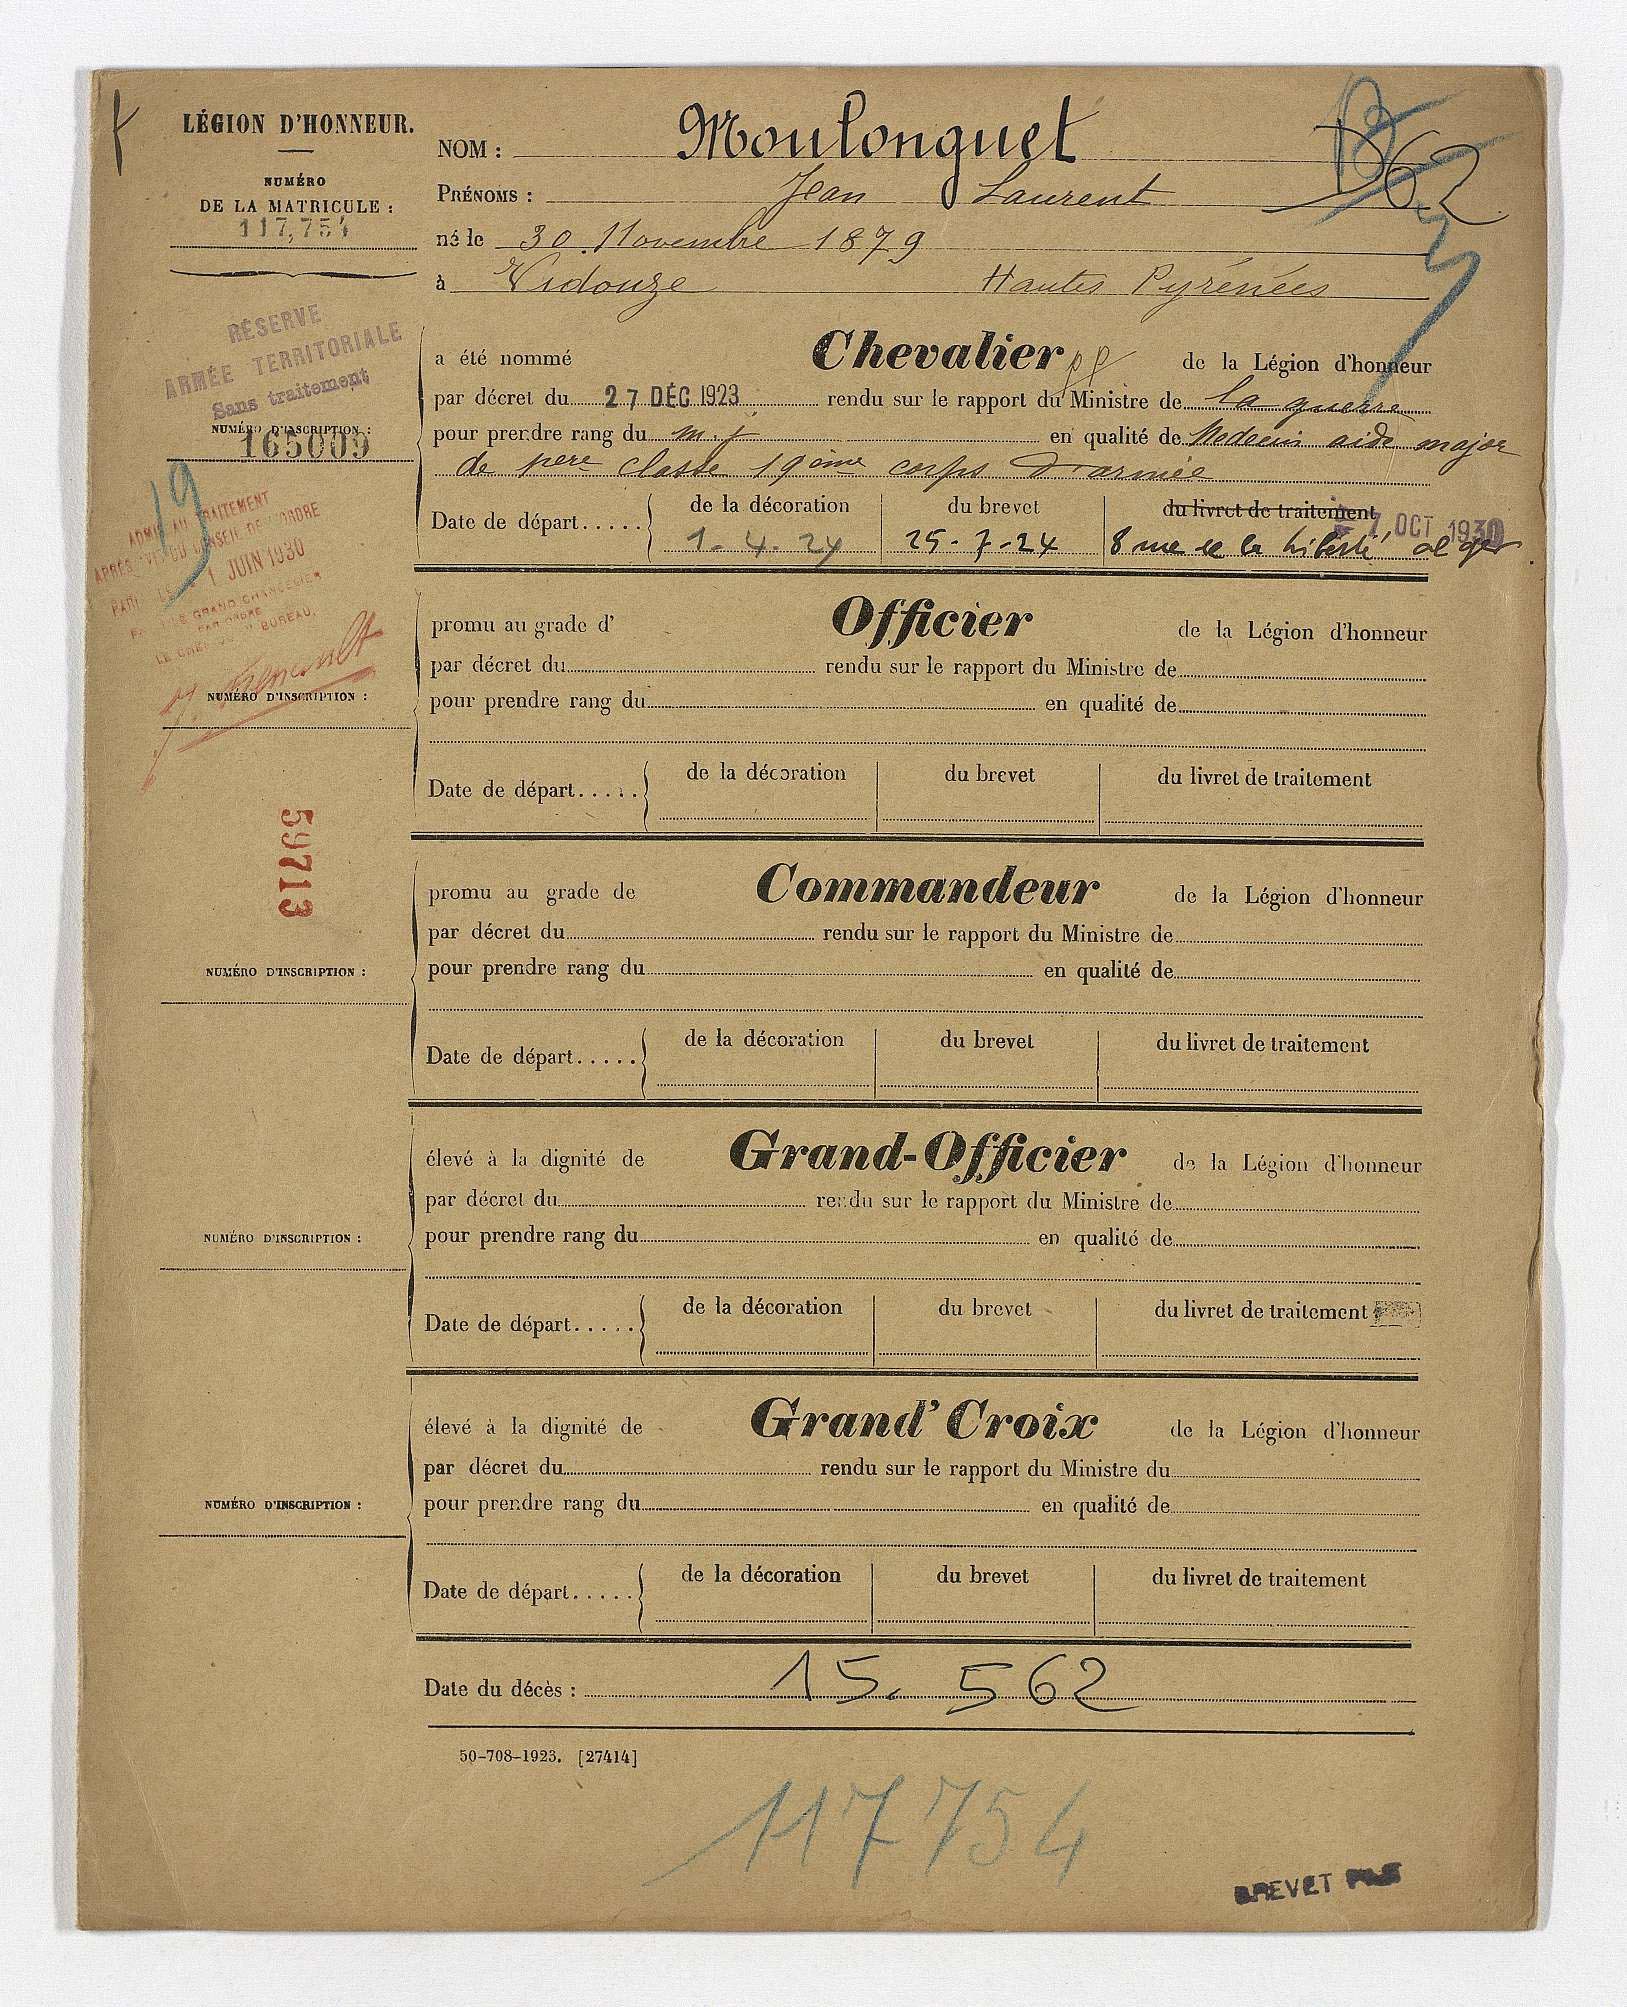 LÉGION D'HONNEUR.
NUMÉRO
DE LA MATRICULE :
117,754
NOM : Moulonguet
D62
PRÉNOMS : Jean Laurent
né le 30 Novembre 1879
à Vidouze Hautes Pyrénées
RÉSERVE
ARMÉE TERRITORIALE
Sans traitement
NUMÉRO D'INSCRIPTION :
165009
19
a été nommé Chevalier de la Légion d'honneur
par décret du 27 DÉC 1923 rendu sur le rapport du Ministre de la guerre
pour prendre rang du m. j en qualité de Medecin aide major
de 1ere classe 19ème corps d'armée
Date de départ..... de la décoration du brevet du livret de traitement
7 OCT 1930
1-4-24 25-7-24 8 rue de la liberté alger
ADMIS AU TRAITEMENT
APRÈS VU DU CONSEIL DE L'ORDRE
1 JUIN 1930
LE GRAND CHANCELIER
PAR ORDRE
LE CHEF DU BUREAU,
promu au grade d' Officier de la Légion d'honneur
par décret du rendu sur le rapport du Ministre de
pour prendre rang du en qualité de
NUMÉRO D'INSCRIPTION :
Date de départ..... de la décoration du brevet du livret de traitement
59713
promu au grade de Commandeur de la Légion d'honneur
par décret du rendu sur le rapport du Ministre de
pour prendre rang du en qualité de
NUMÉRO D'INSCRIPTION :
Date de départ..... de la décoration du brevet du livret de traitement
élevé à la dignité de Grand-Officier de la Légion d'honneur
par décret du rendu sur le rapport du Ministre de
pour prendre rang du en qualité de
NUMÉRO D'INSCRIPTION :
Date de départ..... de la décoration du brevet du livret de traitement
élevé à la dignité de Grand'Croix de la Légion d'honneur
par décret du rendu sur le rapport du Ministre du
pour prendre rang du en qualité de
NUMÉRO D'INSCRIPTION :
Date de départ..... de la décoration du brevet du livret de traitement
Date du décès : 15. 5 62
50-708-1923. [27414]
117754
BREVET